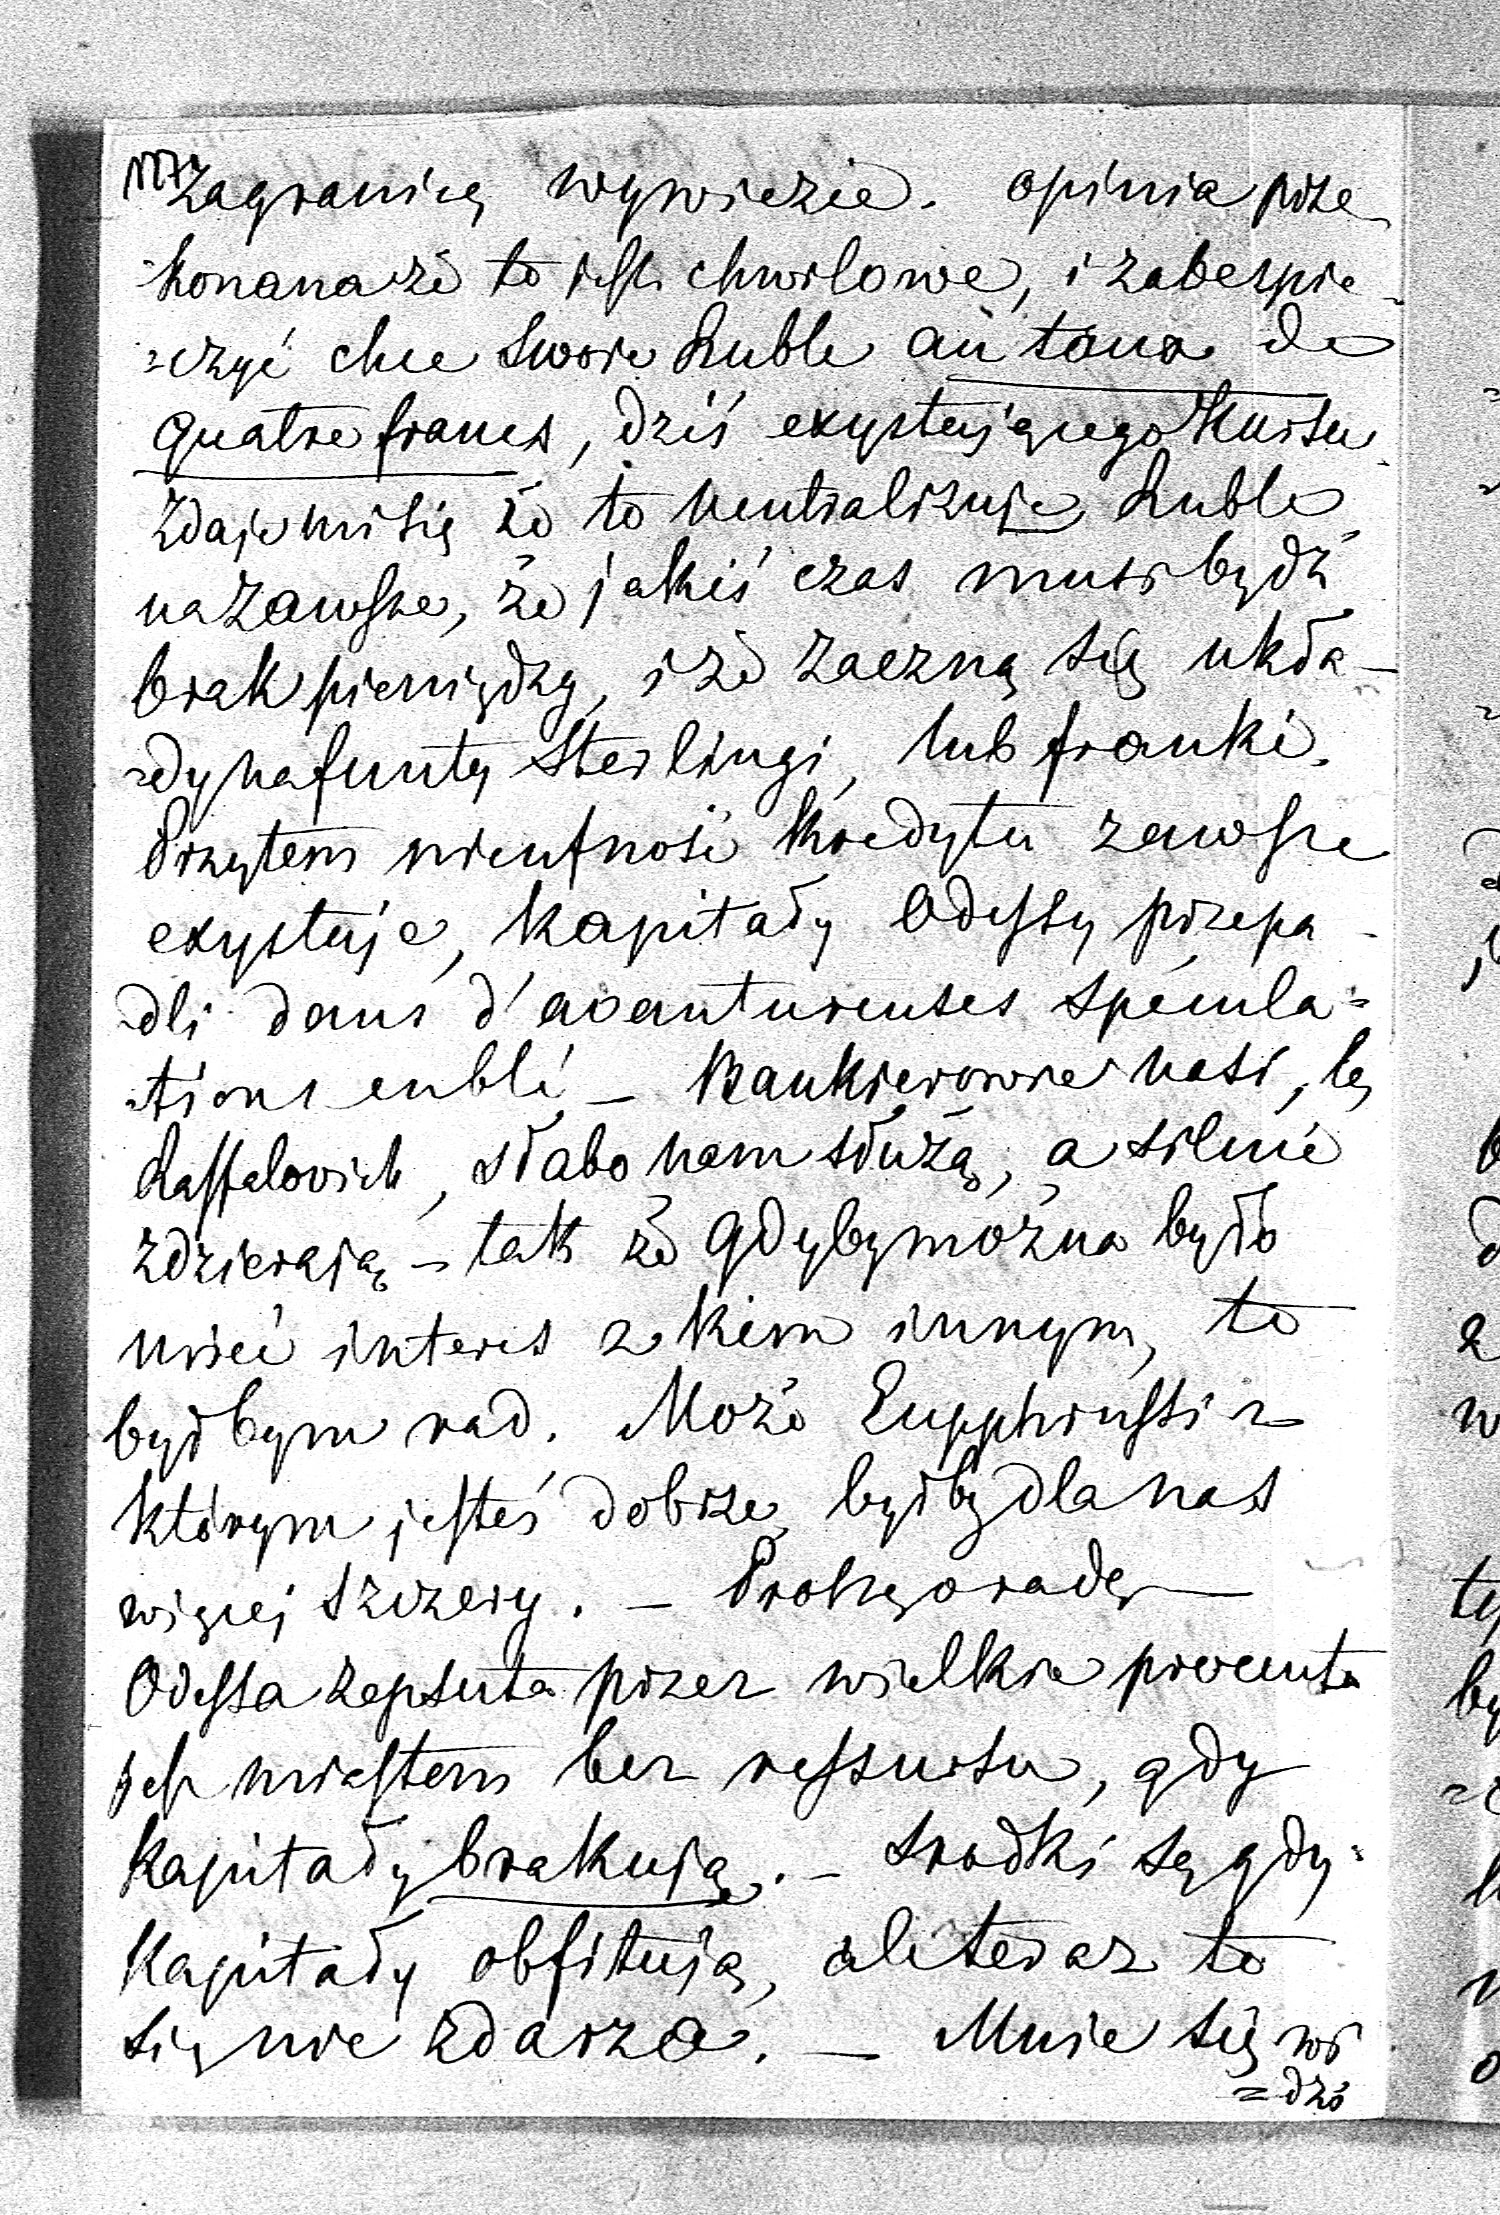 Zagranicę wywiezie. opinia prze-
konana że to jest chwilowe, i zabezpie-
=czyć chce swoje Ruble au taux de
quatre francs, dziś exystującego Kursu.
Zdaje mi się że to neutralizuje Ruble
na zawsze, że jakiś czas musi bydź
brak pieniędzy, i że zaczną się ukła-
=dy na funty Sterlingi, lub franki.
Przytem nieufność Kredytu zawsze
exystuje, Kapitały Odessy przepa-
-dli dans d'avantureuses spécula=
-tions en blé – Bankierowie nasi,
słabo nam służą, a silnie
zdzierają – tak że gdyby można było
mieć interes z kiem innym, to
byłbym rad. Może Eupphrussi z
którym jesteś dobrze, byłby dla nas
więcej szczery. – Proszę o radę –
Odessa zepsuta przez wielkie procenta
jest miastem bez ressursu, gdy
Kapitały brakują. – Srodki są gdy
Kapitały obfitują, ale teraz to
się nie zdarza. – Mnie się wi
=dzi